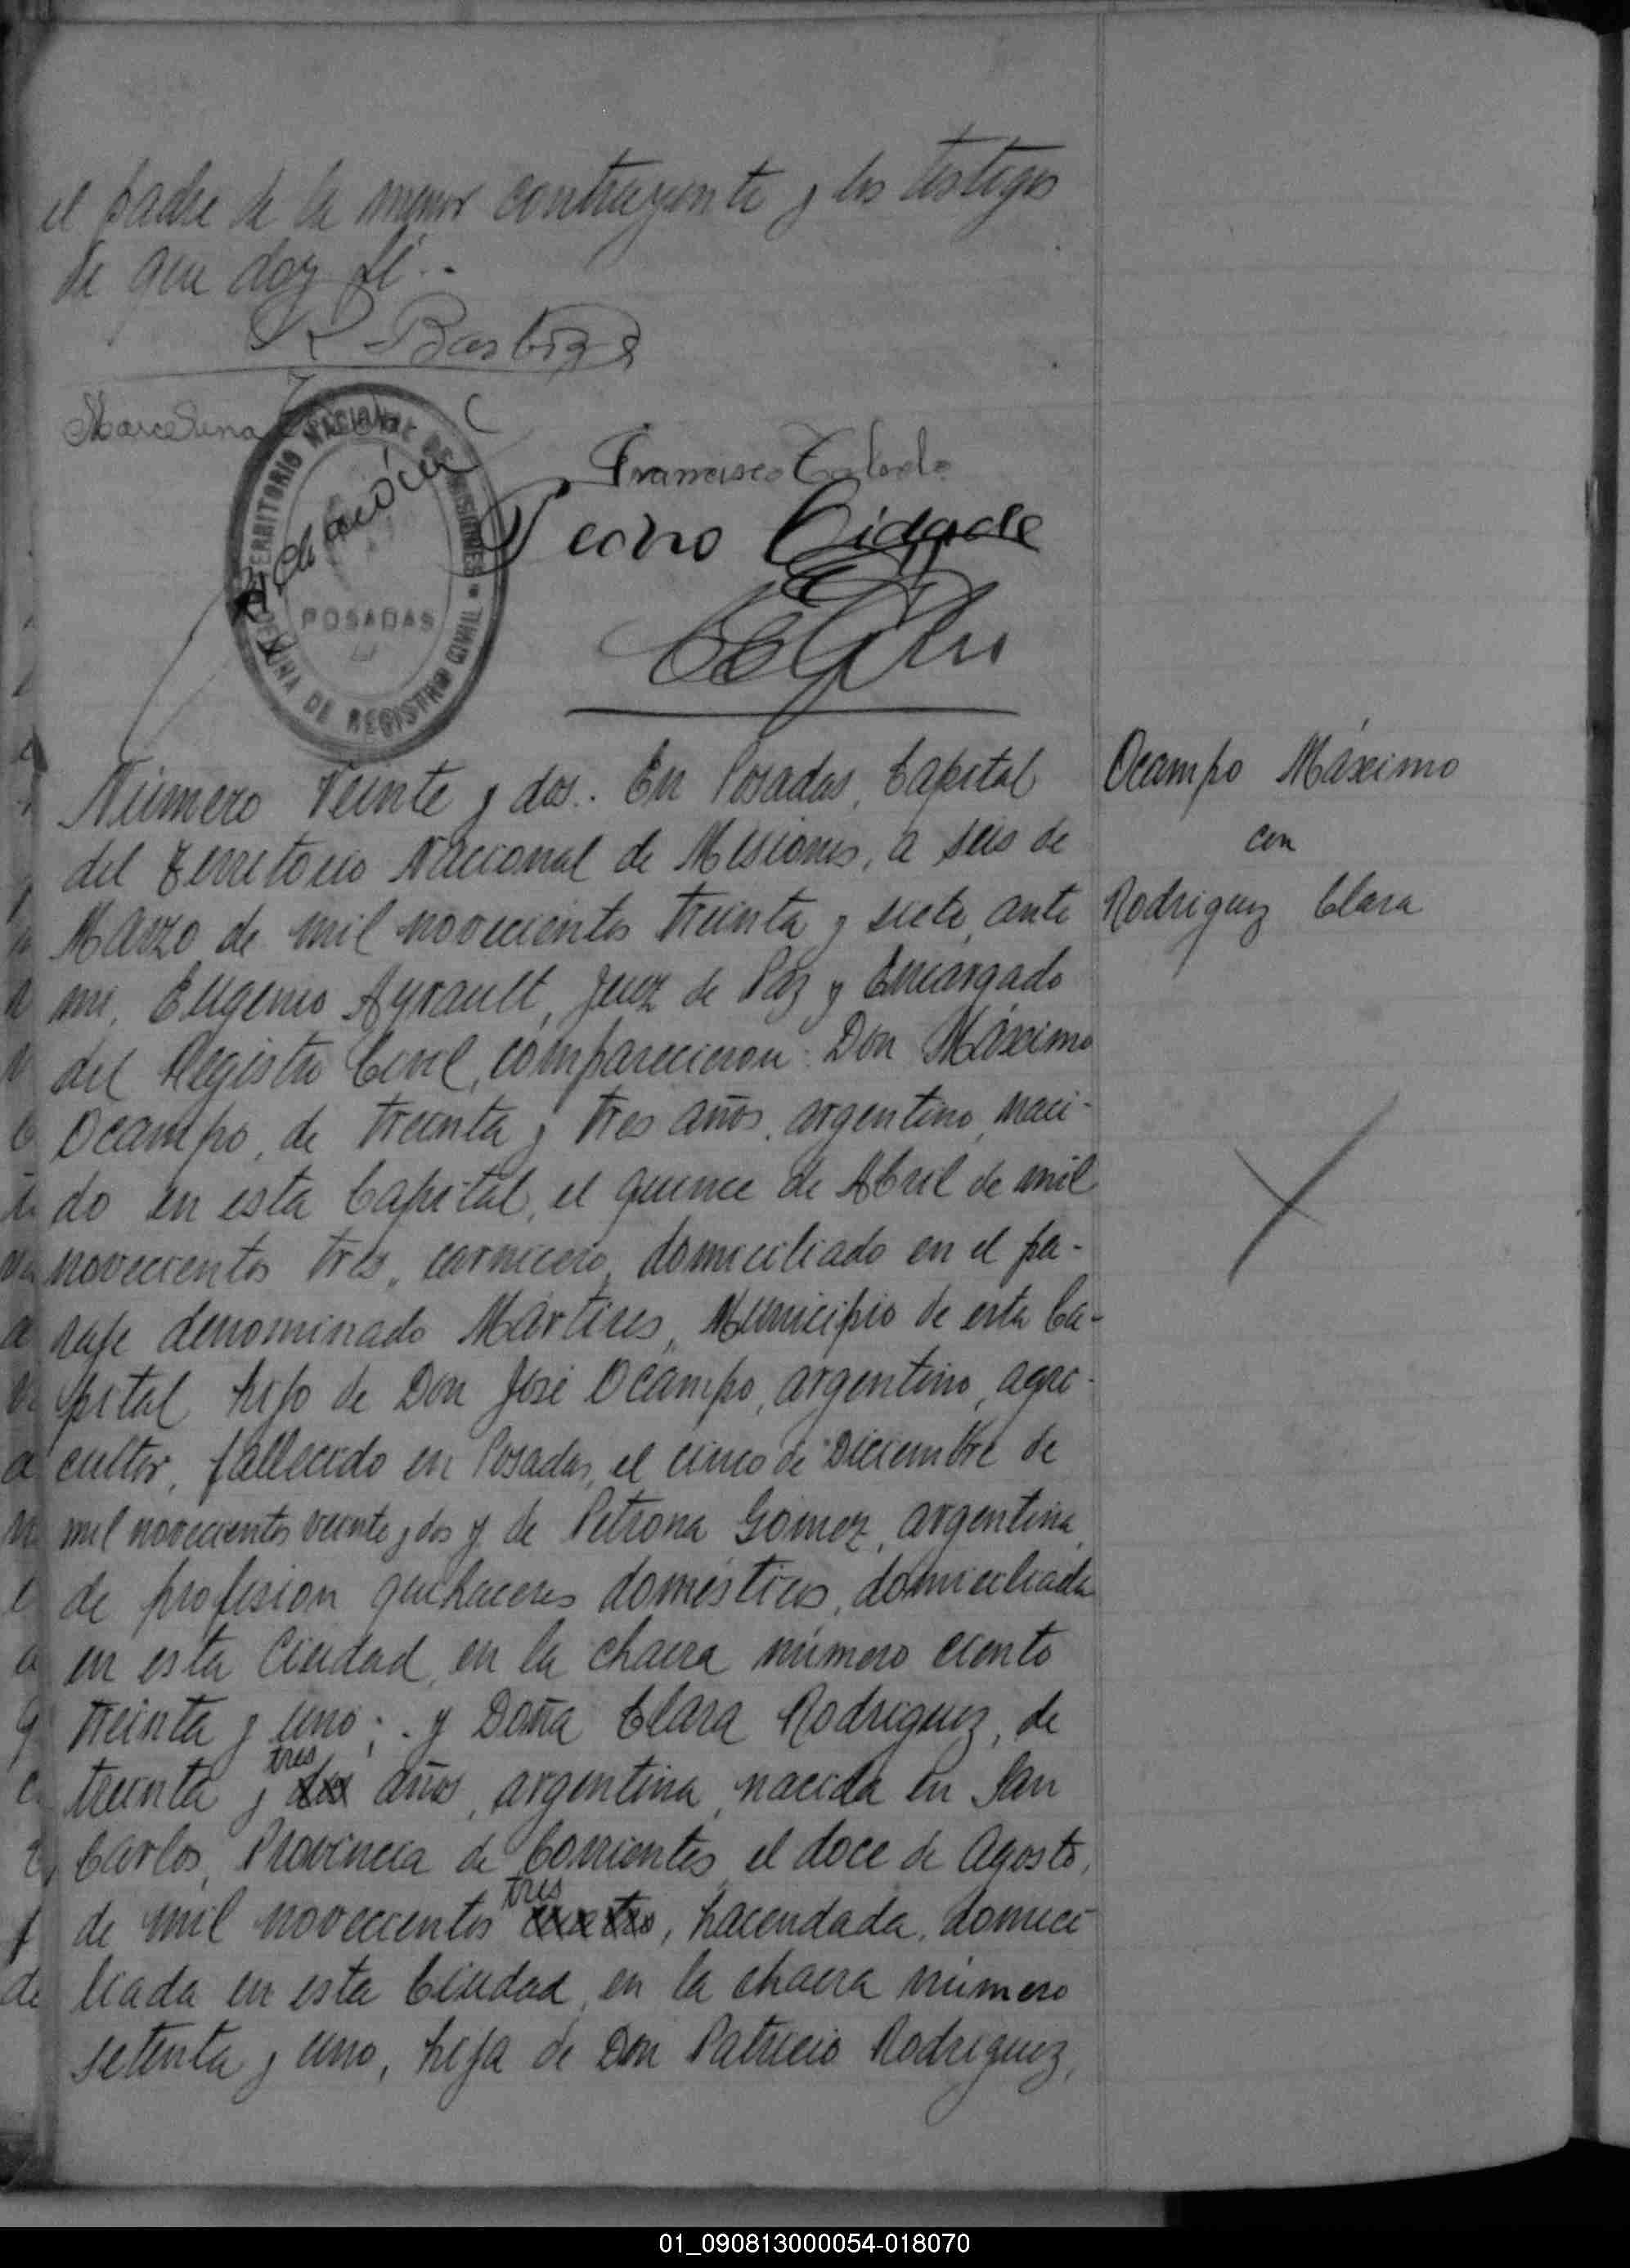 el padre de la menor contrayente y los testigos
de que doy fé.-
Marcelina
Francisco
Pedro
TERRITORIO NACIONAL DE MISIONES
POSADAS
OFICINA DE REGISTRO CIVIL
Ocampo Máximo
con
Rodriguez Clara
Número Veinte y dos.. En Posadas, Capital
del Territorio Nacional de Misiones, a seis de
Marzo de mil novecientos treinta y siete, ante
mi, Eugenio Ayrault, Juez de Paz y Encargado
del Registro Civil, comparecieron: Don Máximo
Ocampo, de treinta y tres años, argentino, naci-
do en esta Capital, el quince de Abril de mil
novecientos tres, carnicero, domiciliado en el pa-
raje denominado Mártires, Municipio de esta Ca-
pital hijo de Don José Ocampo, argentino, agri-
cultor, fallecido en Posadas, el cinco de Diciembre de
mil novecientos veinte y dos y de Petrona Gómez, argentina,
de profesion quehaceres domésticos, domiciliada
en esta Ciudad, en la chacra número ciento
treinta y uno; . y Doña Clara Rodriguez, de
tres
treinta y dos años, argentina, nacida en San
Carlos, Provincia de Corrientes, el doce de Agosto,
tres
de mil novecientos cuatro, hacendada, domici-
liada en esta Ciudad, en la chacra número
setenta y uno, hija de Don Patricio Rodriguez,
01_090813000054-018070